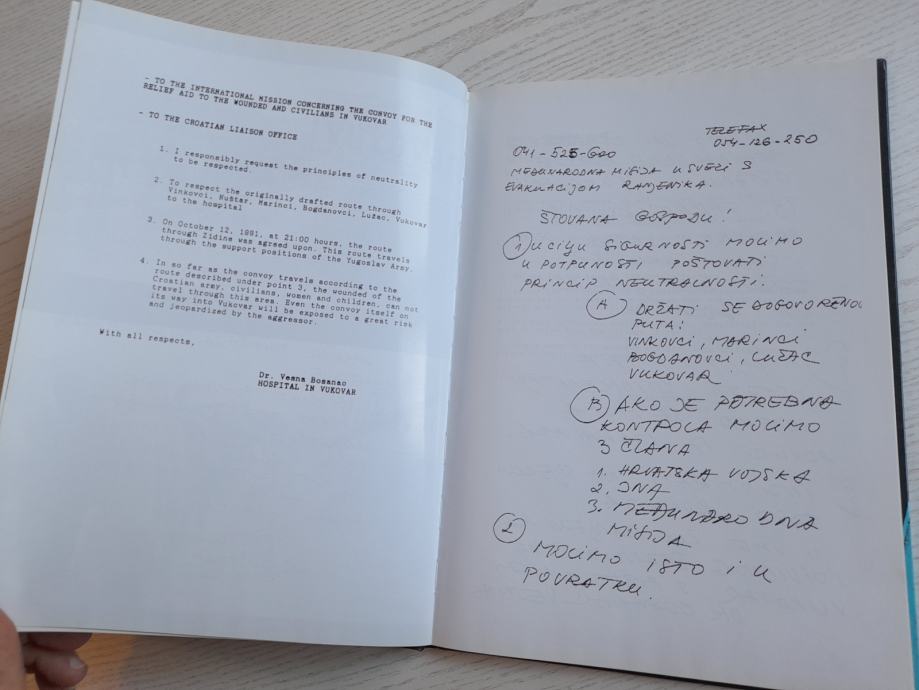 - TO THE INTERNATIONAL MISSION CONCERNING THE CONVOY FOR THE
RELIEF AID TO THE WOUNDED AND CIVILIANS IN VUKOVAR
- TO THE CROATIAN LIAISON OFFICE
1. I responsibly request the principles of neutrality
to be respected.
2. To respect the originally drafted route through
Vinkovci, Nuštar, Marinci, Bogdanovci, Lužac, Vukovar
to the hospital
3. On October 12, 1991, at 21:00 hours, the route
through Zidine was agreed upon. This route travels
through the support positions of the Yugoslav Army.
4. In so far as the convoy travels according to the
route described under point 3, the wounded of the
Croatian army, civilians, women and children, can not
travel through this area. Even the convoy itself on
its way into Vukovar will be exposed to a great risk
and jeopardized by the aggressor.
With all respects,
Dr. Vesna Bosanac
HOSPITAL IN VUKOVAR
TELEFAX
041-525-600 054-126-250
MEĐUNARODNA MISIJA U SVEZI S
EVAKUACIJOM RANJENIKA.
ŠTOVANA GOSPODO!
1 U CILJU SIGURNOSTI MOLIMO
U POTPUNOSTI POŠTOVATI
PRINCIP NEUTRALNOSTI.
A DRŽATI SE DOGOVORENOG
PUTA:
VINKOVCI, MARINCI
BOGDANOVCI, LUŽAC
VUKOVAR
B AKO JE POTREBNA
KONTROLA MOLIMO
3 ČLANA
1. HRVATSKA VOJSKA
2. JNA
3. MEĐUNARODNA
MISIJA
2 MOLIMO ISTO I U
POVRATKU.